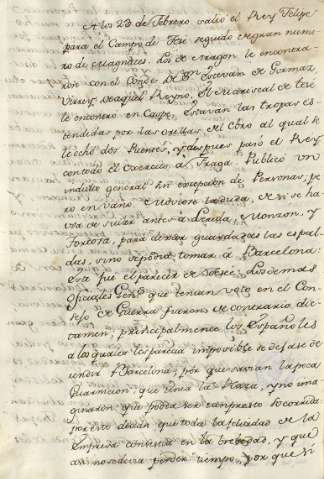 A los 23 de Febrero salió el Rey Felipe
para el Campo de Tesé seguido de gran nume-
ro de Magnates. Los de Aragon le encontra-
ron con el Conde de Sn. Estevan de Gormaz,
Virrey de aquel Reyno. El Mariscal de Tesé
le encontró en Caspe, estavan las tropas es-
tendidas por las orillas del Ebro al qual se
le echó dos Puentes, y despues pasó el Rey
con todo el exercito à Fraga. Publicó un
indulto general sin excepcion de Personas, pe-
ro en vano. Huvieron la duda, de si se ha-
via de sitiar antes à Lerida, Monzon, y
Tortosa, para dexar guardadas las espal-
das, sino se podia tomar à Barcelona:
este fué el parecer de Tesé. Los demas
Oficiales Gens. que tenian voto en el Con-
sejo de Guerra fueron de contrario dic-
tamen, principalmente los Españoles
a los quales les parecia imposible se dejase de
rendir Barcelona, por que savian la poca
Guarnicion, que tenia la Plaza, y no ima-
ginavan que podia ser tan presto socorrida
por esto decian que toda la felicidad de la
Empresa consistia en la brebedad, y que
assi no se devia perder tiempo, por que si